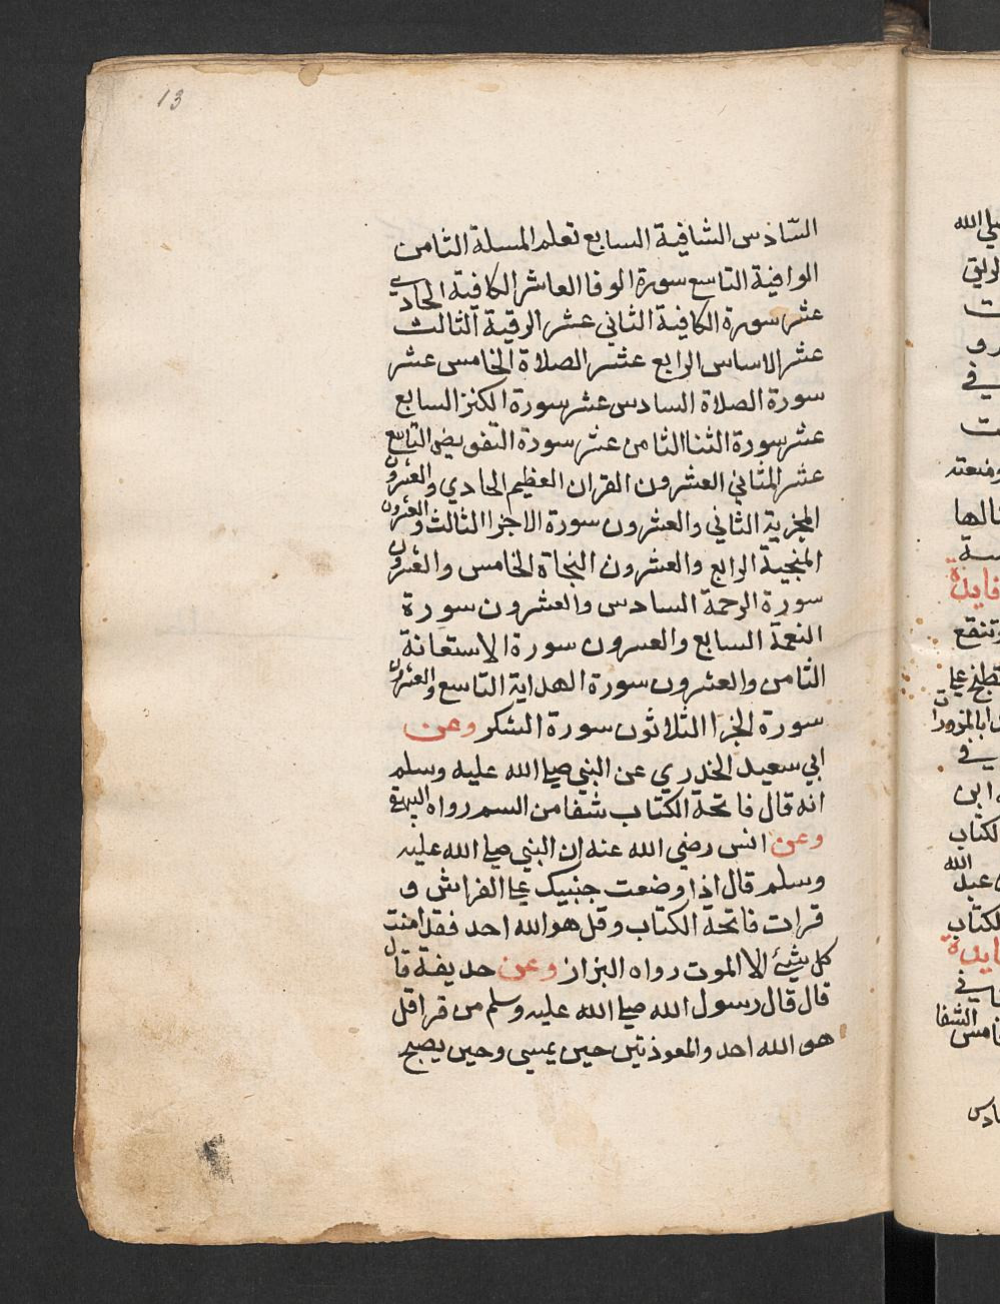 13
السّادس الشافية السابع تعلم المسلة الثامن
الوافية التاسع سورة الوفا العاشر الكافية الحادي
عشر سورة الكافية الثاني عشر الرقية الثالث
عشر الاساس الرابع عشر الصلاة الخامس عشر
سورة الصلاة السادس عشر سورة الكنز السابع
عشر سورة الثنا الثامن عشر سورة التفويض التاسع
عشر المثاني العشرون القران العظيم الحادي والعشرون
المجزية الثاني والعشرون سورة الاجزا الثالث والعشرون
المنجية الرابع والعشرون النجاة الخامس والعشرون
سورة الرحمة السادس والعشرون سورة
النعمة السابع والعسرون سورة الاستعانة
الثامن والعشرون سورة الهداية التاسع والعشرون
سورة الجزا الثلاثون سورة الشكر وعن
ابي سعيد الخدري عن النبي صلى الله عليه وسلم
انه قال فاتحة الكتاب شفا من السم رواه البيهقي
وعن انس رضي الله عنه ان النبي صلى الله عليه
وسلم قال اذا وضعت جنبيك على الفراش و
قرات فاتحة الكتاب وقل هو الله احد فقد امنت
كل شيئ الا الموت رواه البزاز وعن حديفة قال
قال قال رسول الله صلى الله عليه وسلم من قرا قل
هو الله احد والمعوذتين حين يمسي وحين يصبح
صلي الله
في
ومنعته
سة
فايدة
وتنفع
في
ابن
الكتاب
الله
عبد
الكتاب
فايدة
في
الشفا